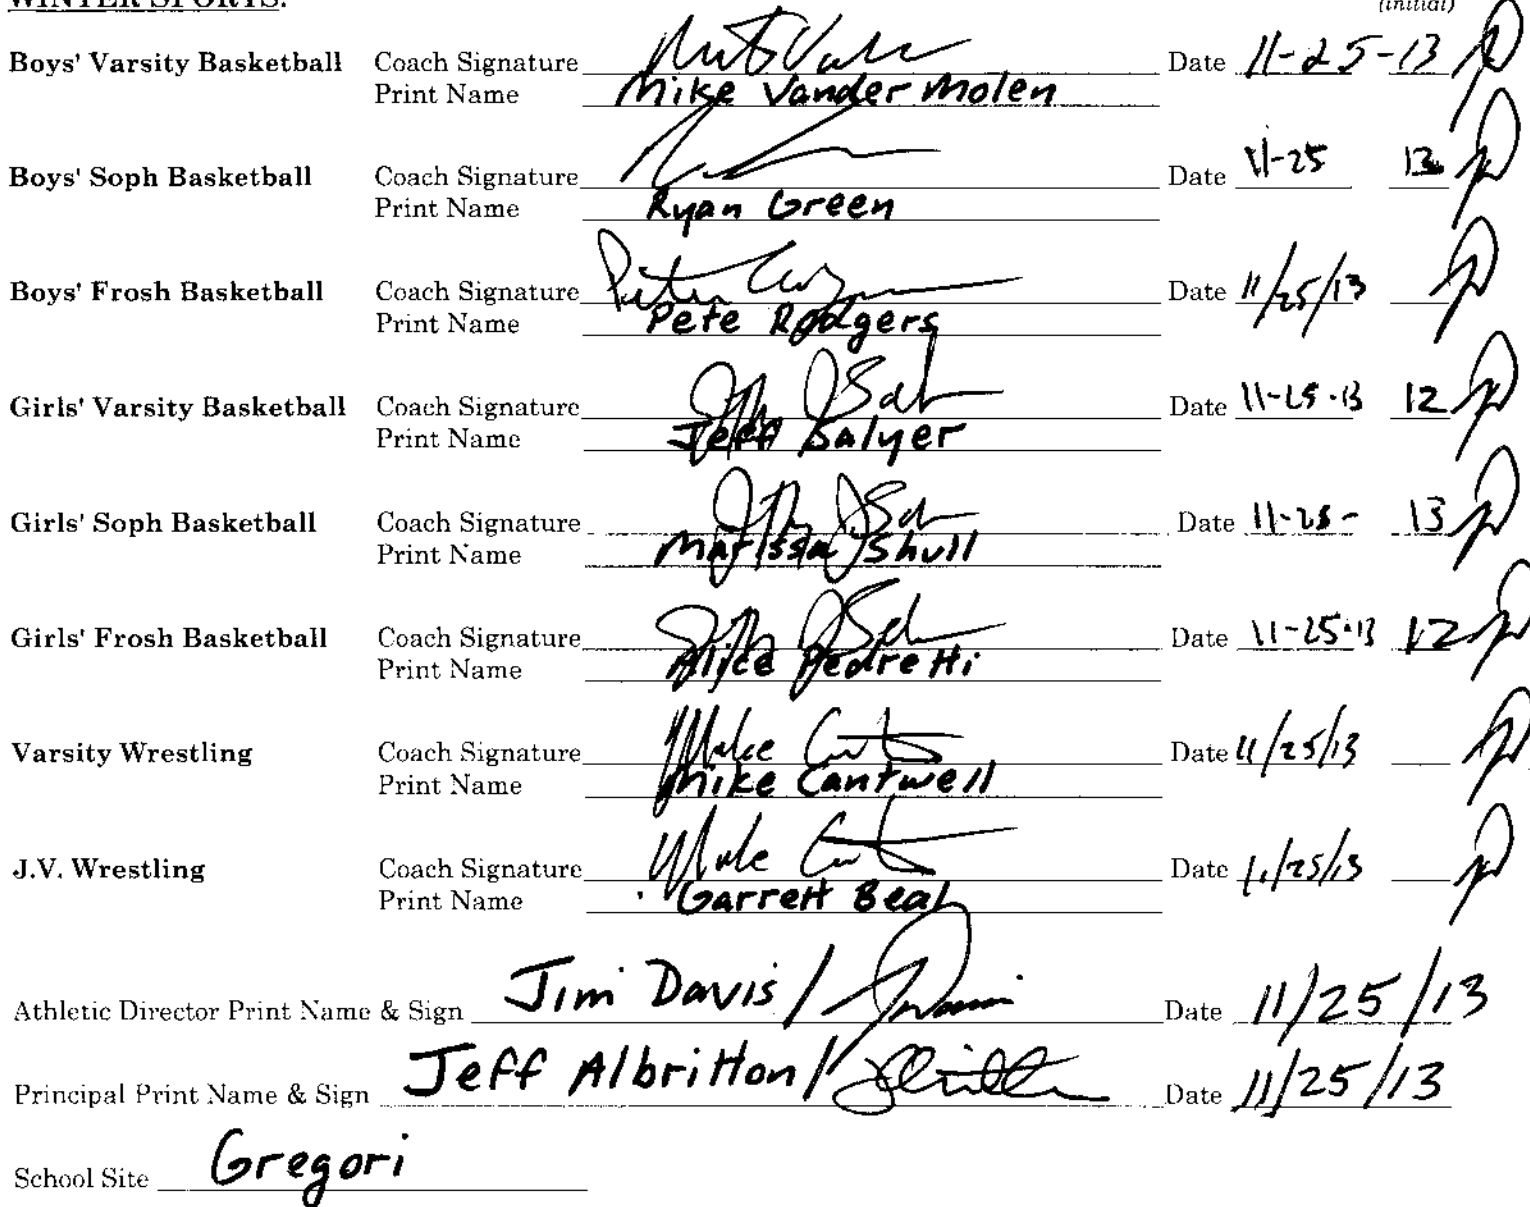 WINTER SPORTS:
(initial)
Boys' Varsity Basketball Coach Signature Date 11-25-13
Print Name Mike Vander Molen
Boys' Soph Basketball Coach Signature Date 11-25 13
Print Name Ryan Green
Boys' Frosh Basketball Coach Signature Date 11/25/13
Print Name Pete Rodgers
Girls' Varsity Basketball Coach Signature Date 11-25-13 12
Print Name Jeff Salyer
Girls' Soph Basketball Coach Signature Date 11-25- 13
Print Name Marissa Shull
Girls' Frosh Basketball Coach Signature Date 11-25-13 12
Print Name Alice Pedretti
Varsity Wrestling Coach Signature Date 11/25/13
Print Name Mike Cantwell
J.V. Wrestling Coach Signature Date 11/25/13
Print Name Garrett Beal
Athletic Director Print Name & Sign Jim Davis / Date 11/25/13
Principal Print Name & Sign Jeff Albritton / Date 11/25/13
School Site Gregori